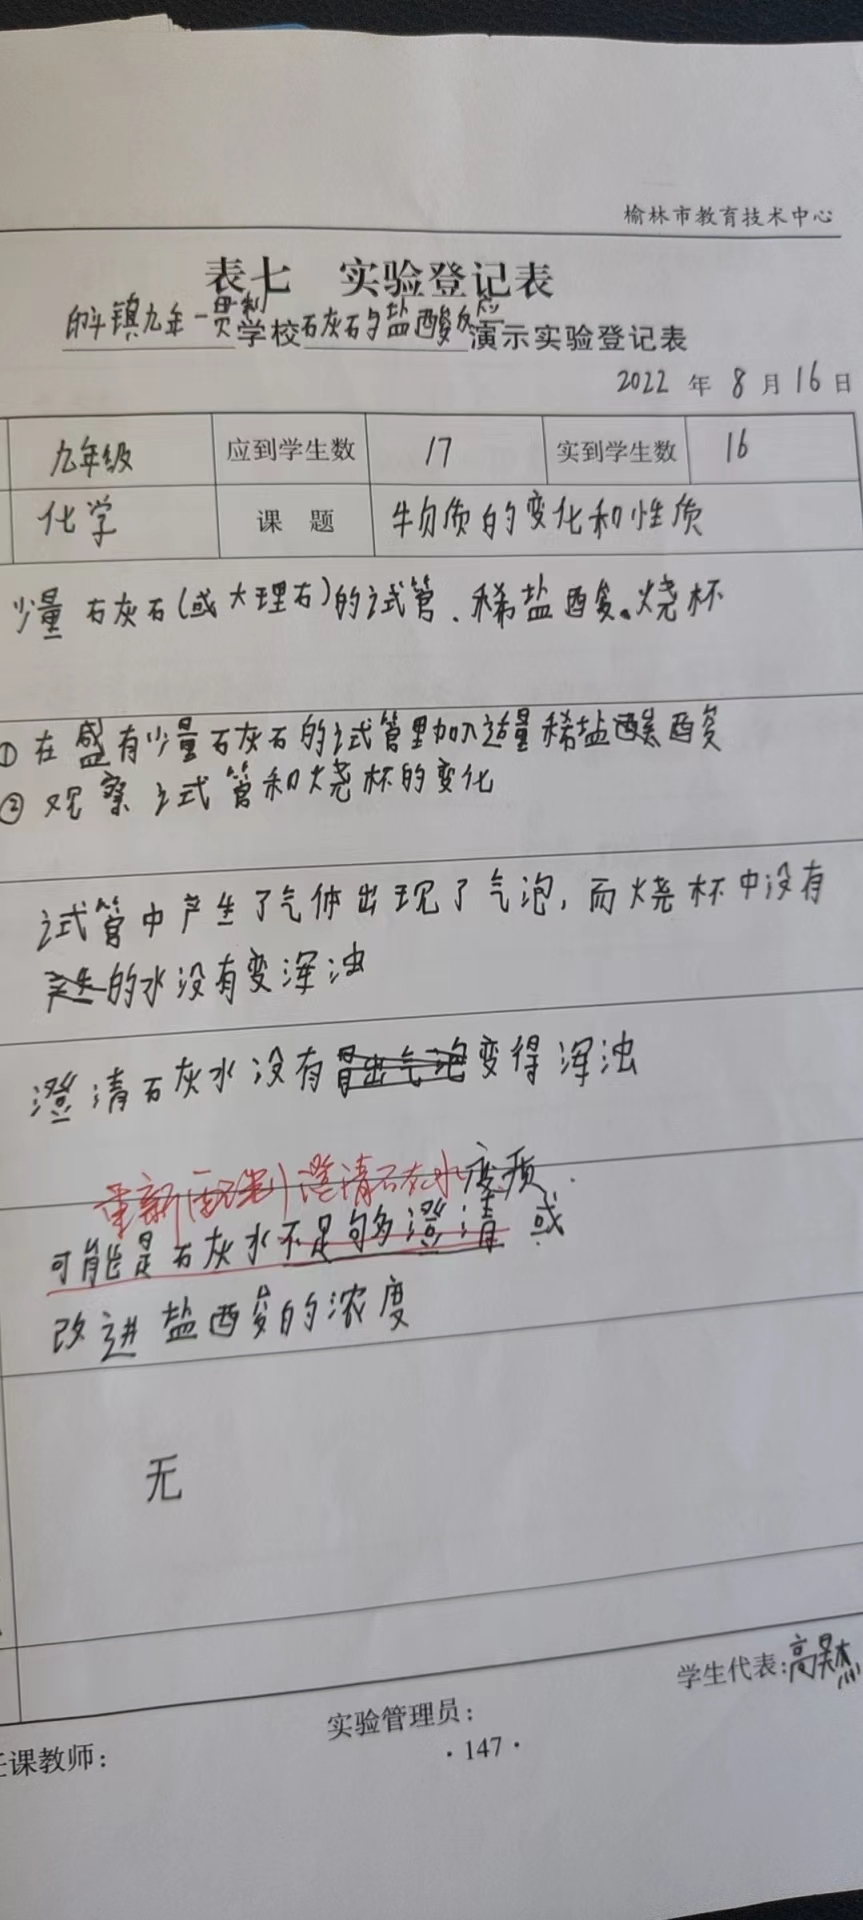 榆林市教育技术中心
表七 实验登记表
镇九年一贯制学校石灰石与盐酸反应演示实验登记表
2022 年 8 月 16 日
九年级 应到学生数 17 实到学生数 16
化学 课 题 物质的变化和性质
少量石灰石(或大理石)的试管、稀盐酸、烧杯
①在盛有少量石灰石的试管里加入适量稀盐酸
②观察试管和烧杯的变化
试管中产生了气体出现了气泡,而烧杯中没有
产生的水没有变浑浊
澄清石灰水没有冒出气泡变得浑浊
重新配制澄清石灰水 变质
可能是石灰水不足够澄清 或
改进盐酸的浓度
无
学生代表:高
实验管理员:
任课教师:
·147·